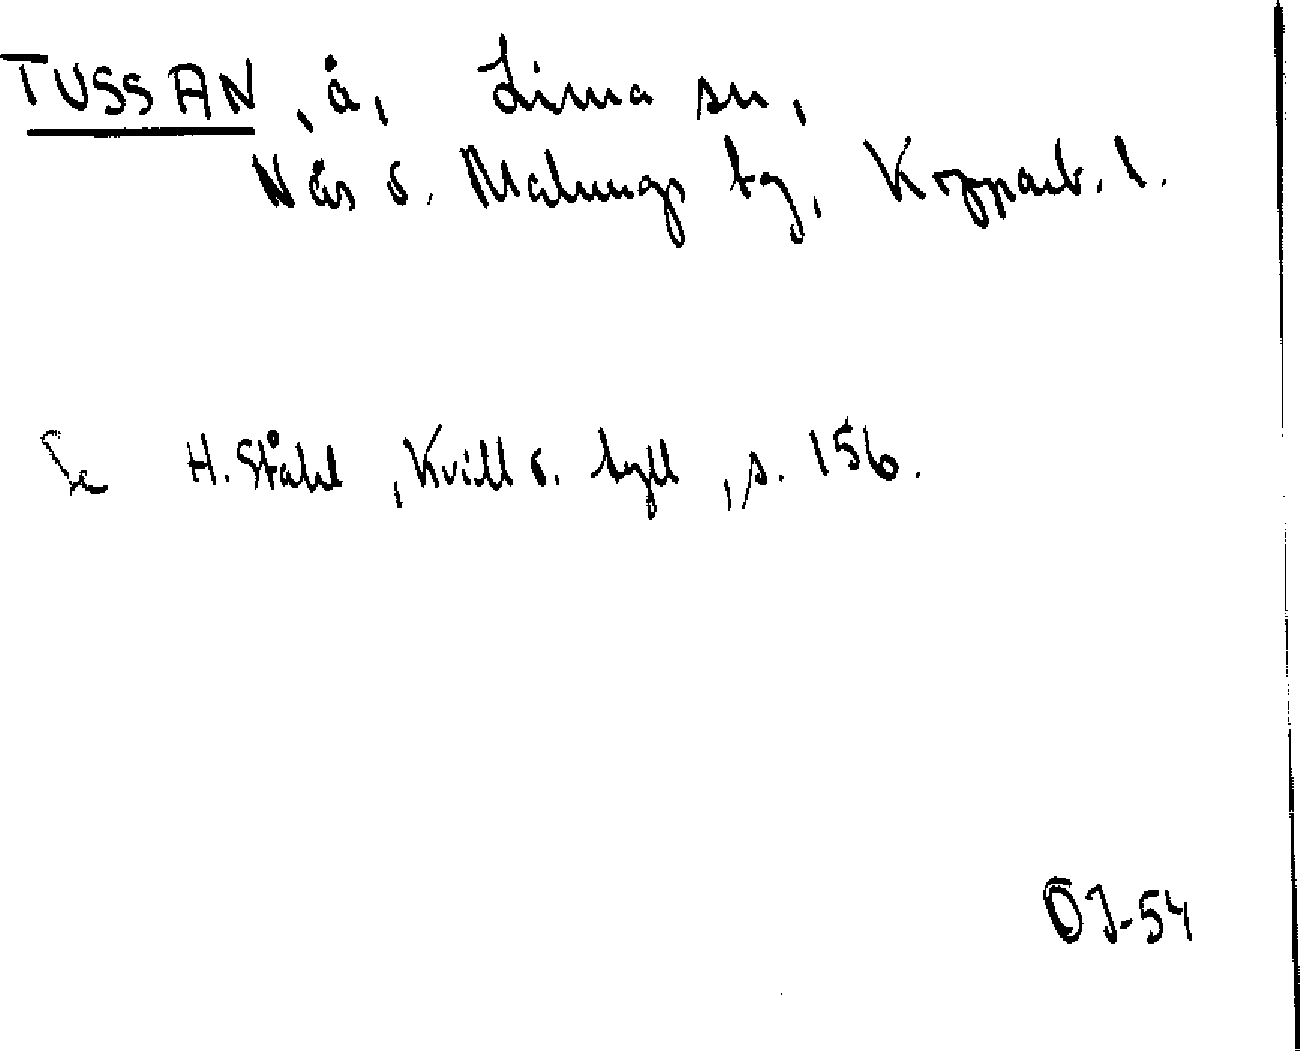 TUSSAN, å, Lima sn,
Nås o. Malungs tg, Kopparb. l.
Se H. Ståhl, Kvill o. tyll, s. 156.
ÖJ-54